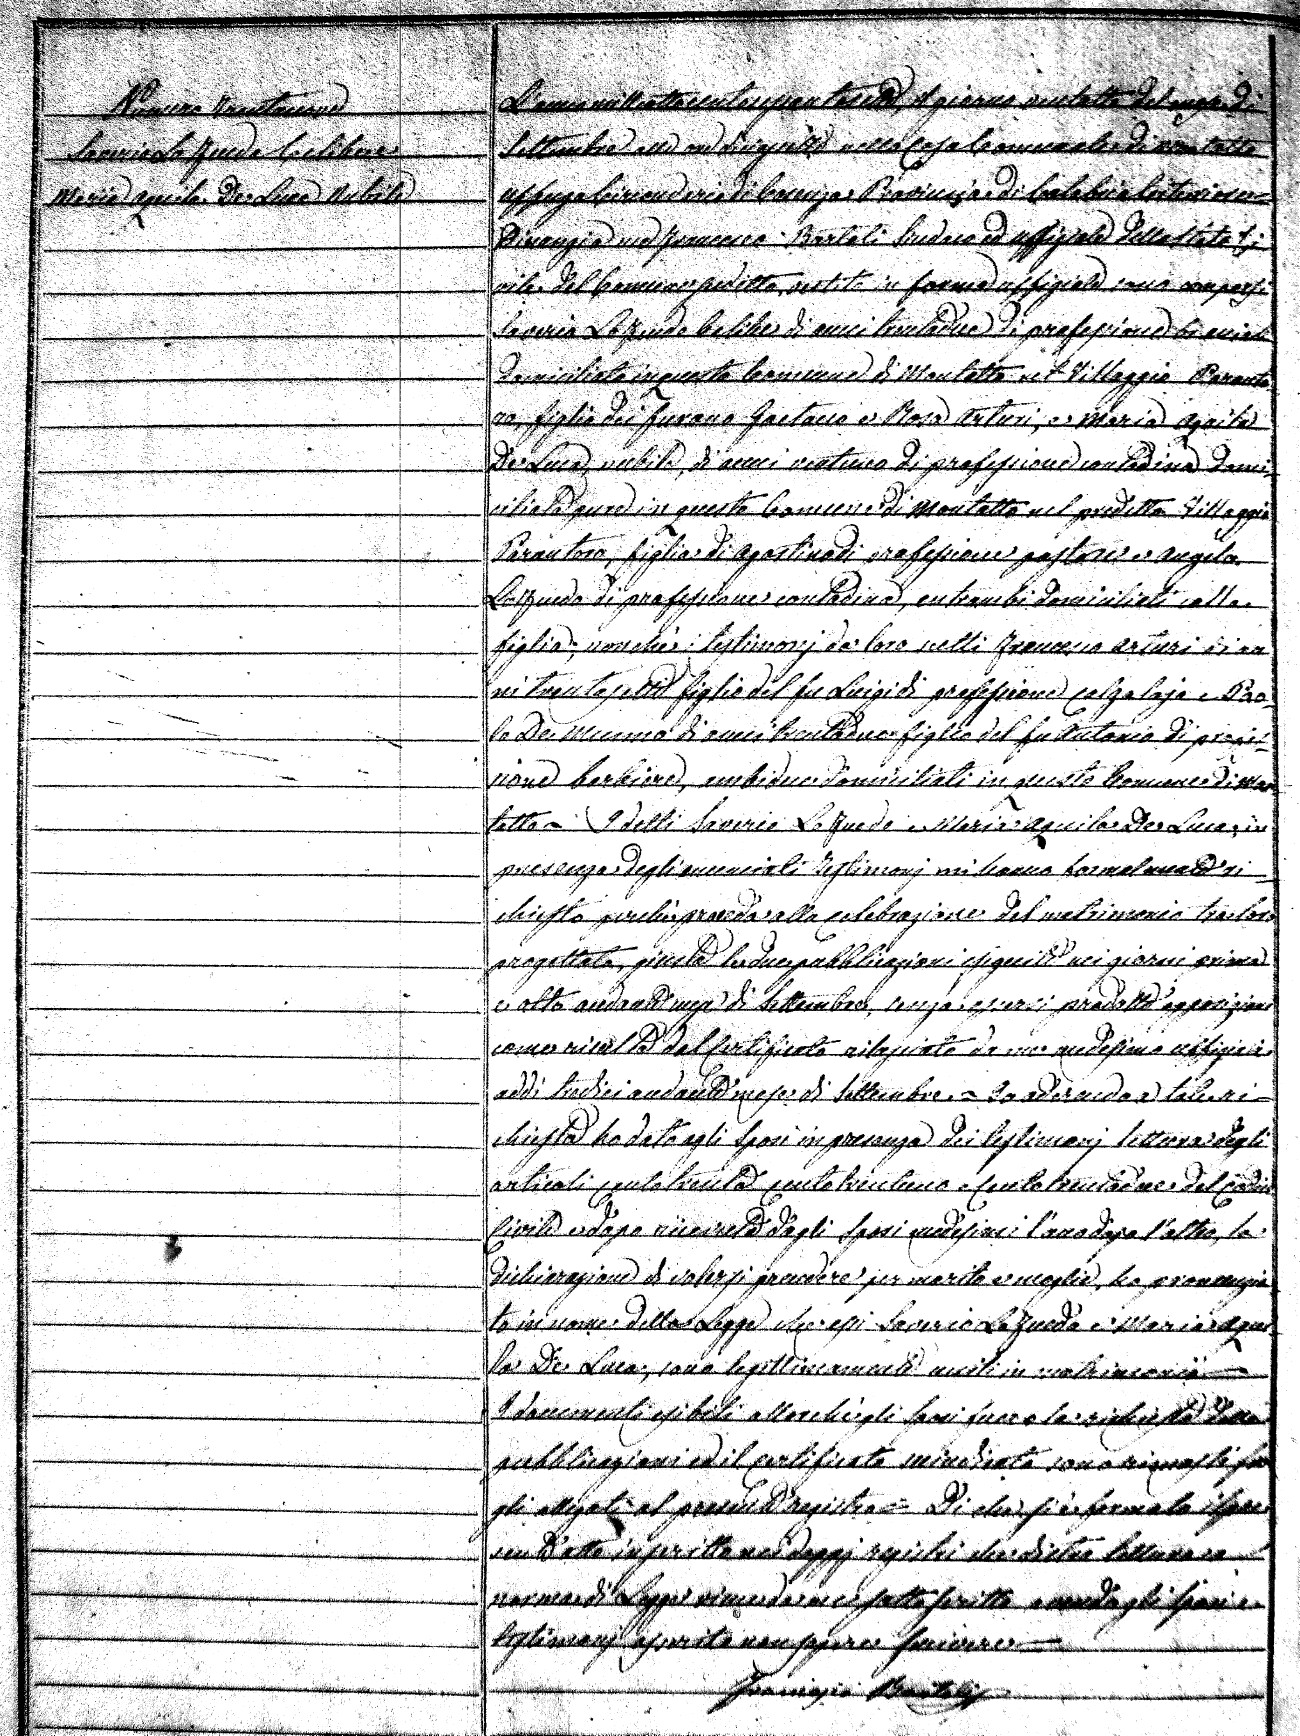 Numero Trentanove
Saverio Lo Feudo Celibe e
Maria Aquila De Luca Nubile
L'anno milleottocentosessantasette, il giorno ventotto del mese di
Settembre alle ore nella Casa Comunale di Montalto
Uffugo Circondario di Cosenza Provincia di Calabria Citeriore =
Dinanzi a me Francesco Bartoli Sindaco ed uffiziale dello Stato Ci
vile del Comune predetto, vestito in forma uffiziale sono comparsi
Saverio Lo Feudo Celibe di anni trentadue di professione
domiciliato in questo Comune di Montalto nel Villaggio Paranto
ro, figlio dei furono Gaetano e Rosa Arturi, e Maria Aquila
De Luca, nubile, di anni ventuno di professione contadina domi
ciliata pure in questo Comune di Montalto nel predetto Villaggio
Parantoro, figlia di Agostino di professione pastore e Angela
Lo Feudo di professione contadina, entrambi domiciliati colla
figlia; nonché i testimonj da loro scelti Francesco Arturi di an
ni trentasette figlio del fu Luigi di professione calzolajo e Pao-
lo De Munno di anni trentadue figlio del fu Antonio di profes-
sione barbiere, ambidue domiciliati in questo Comune di Mon
talto = I detti Saverio Lo Feudo e Maria Aquila De Luca, in
presenza degli annunciati testimonj mi hanno formalmente ri-
chiesto perché proceda alla celebrazione del matrimonio tra loro
progettato, giusta le due pubblicazioni eseguite nei giorni primo
e otto andante mese di Settembre, senza essersi prodotte opposizioni
come risulta dal Certificato rilasciato da me medesimo uffiziale
addì tredici andante mese di Settembre. = Io aderendo a tale ri-
chiesta ho dato agli Sposi in presenza dei testimonj lettura degli
articoli centotrenta centotrentuno e centotrentadue del Codice
Civile e dopo ricevuta dagli Sposi medesimi l'uno dopo l'altro, la
dichiarazione di volersi prendere per marito e moglie, ho pronunzia
to in nome della Legge che essi Saverio Lo Feudo e Maria Aqui
la De Luca, sono legittimamente uniti in matrimonio =
I documenti esibiti allorché gli Sposi fecero la richiesta delle
pubblicazioni ed il certificato suindicato sono rimasti fra
gli allegati al presente registro = Di che si è formato il pre
sente atto inscritto nei doppj registri che dietro lettura a
norma di Legge viene da me sottoscritto avendo gli Sposi e
testimonj asserito non sapere scrivere =
Francesco Bartoli